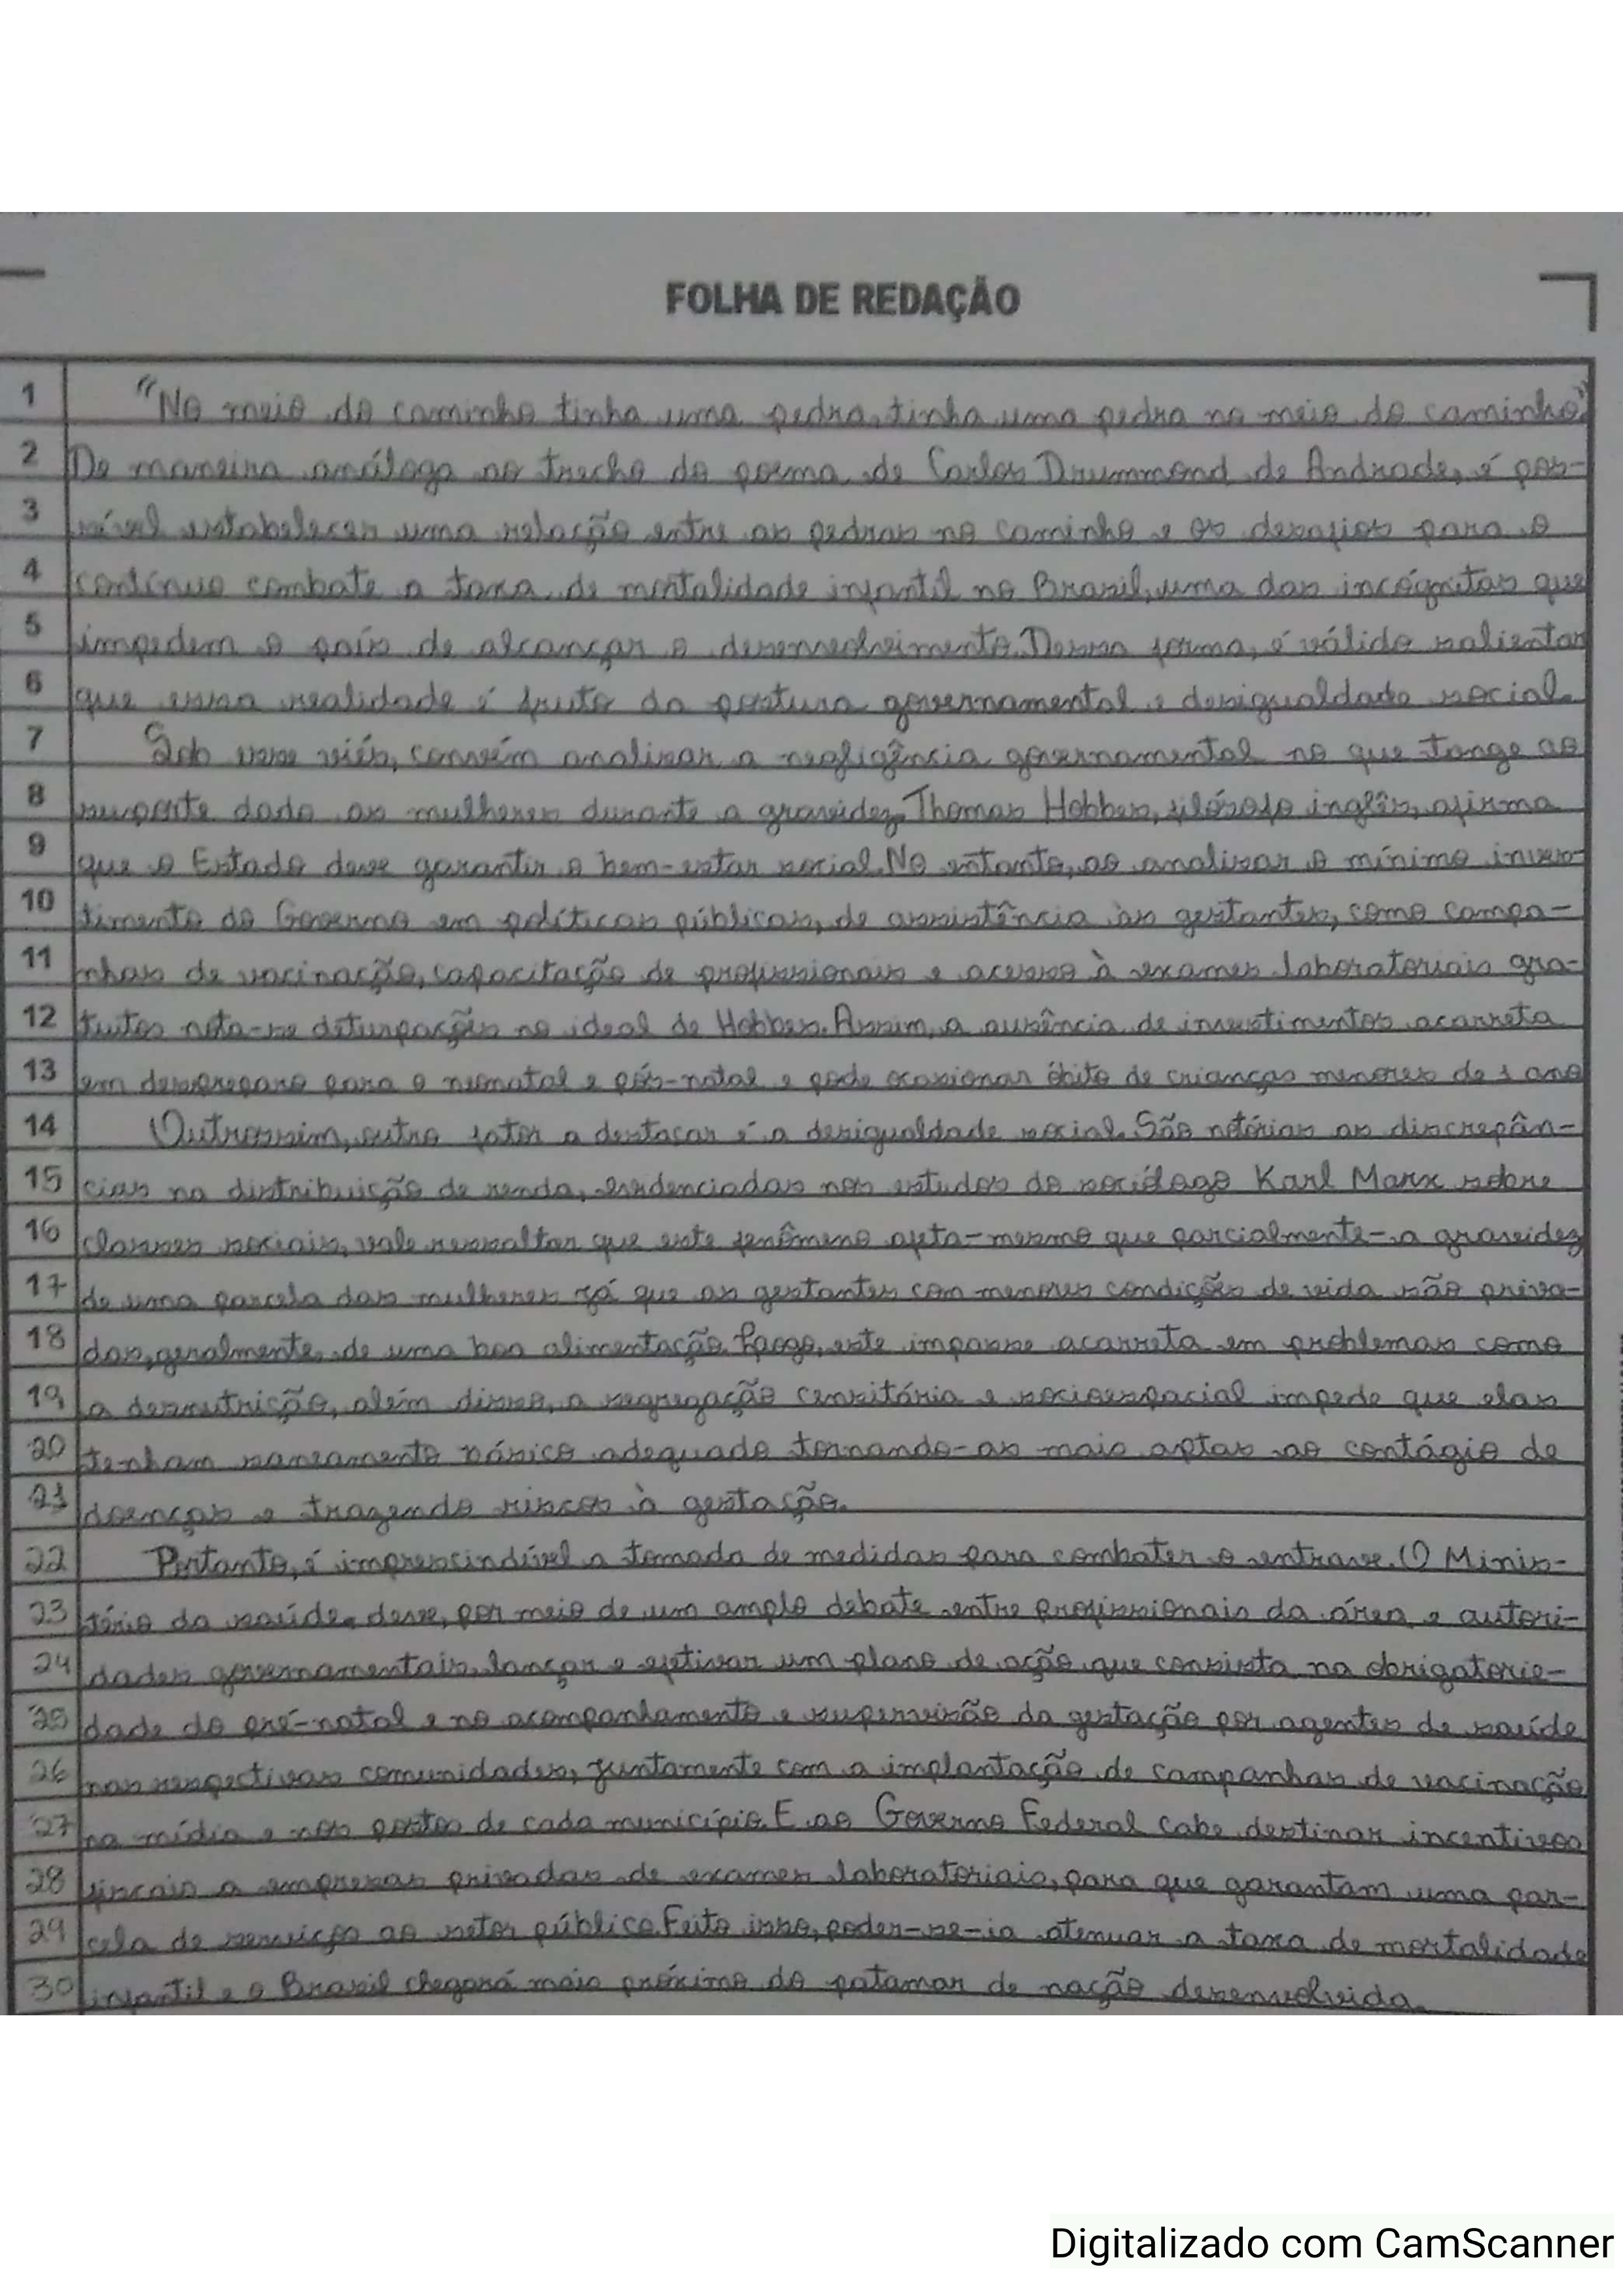 FOLHA DE REDAÇÃO
1 "No meio do caminho tinha uma pedra, tinha uma pedra no meio do caminho"
2 De maneira análoga ao trecho do poema de Carlos Drummond de Andrade, é pos-
3 sível estabelecer uma relação entre as pedras no caminho e os desafios para o
4 contínuo combate a taxa de mortalidade infantil no Brasil, uma das incógnitas que
5 impedem o país de alcançar o desenvolvimento. Dessa forma, é válido salientar
6 que essa realidade é fruto da postura governamental e desigualdade social.
7 Sob esse viés, convém analisar a negligência governamental no que tange ao
8 suporte dado as mulheres durante a gravidez. Thomas Hobbes, filósofo inglês, afirma
9 que o Estado deve garantir o bem-estar social. No entanto, ao analisar o mínimo inves-
10 timento do Governo em políticas públicas, de assistência às gestantes, como campa-
11 nhas de vacinação, capacitação de profissionais e acesso à exames laboratoriais gra-
12 tuitos nota-se deturpações no ideal de Hobbes. Assim, a ausência de investimentos acarreta
13 em despreparo para o neonatal e pós-natal e pode ocasionar óbito de crianças menores de 1 ano
14 Outrossim, outro fator a destacar é a desigualdade social. São notórias as discrepân-
15 cias na distribuição de renda, evidenciadas nos estudos do sociólogo Karl Marx sobre
16 classes sociais, vale ressaltar que este fenômeno afeta-mesmo que parcialmente-a gravidez
17 de uma parcela das mulheres já que as gestantes com menores condições de vida são priva-
18 das, geralmente, de uma boa alimentação. Logo, este impasse acarreta em problemas como
19 a desnutrição, além disso, a segregação censitária e socioespacial impede que elas
20 tenham saneamento básico adequado tornando-as mais aptas ao contágio de
21 doenças e trazendo riscos à gestação.
22 Portanto, é imprescindível a tomada de medidas para combater o entrave. O Minis-
23 tério da saúde, deve, por meio de um amplo debate entre profissionais da área e autori-
24 dades governamentais, lançar e efetivar um plano de ação que consista na obrigatorie-
25 dade do pré-natal e no acompanhamento e supervisão da gestação por agentes de saúde
26 nas respectivas comunidades, juntamente com a implantação de campanhas de vacinação
27 na mídia e nos postos de cada município. E ao Governo Federal cabe destinar incentivos
28 fiscais a empresas privadas de exames laboratoriais, para que garantam uma par-
29 cela de serviços ao setor público. Feito isso, poder-se-ia atenuar a taxa de mortalidade
30 infantil e o Brasil chegará mais próximo do patamar de nação desenvolvida.
Digitalizado com CamScanner